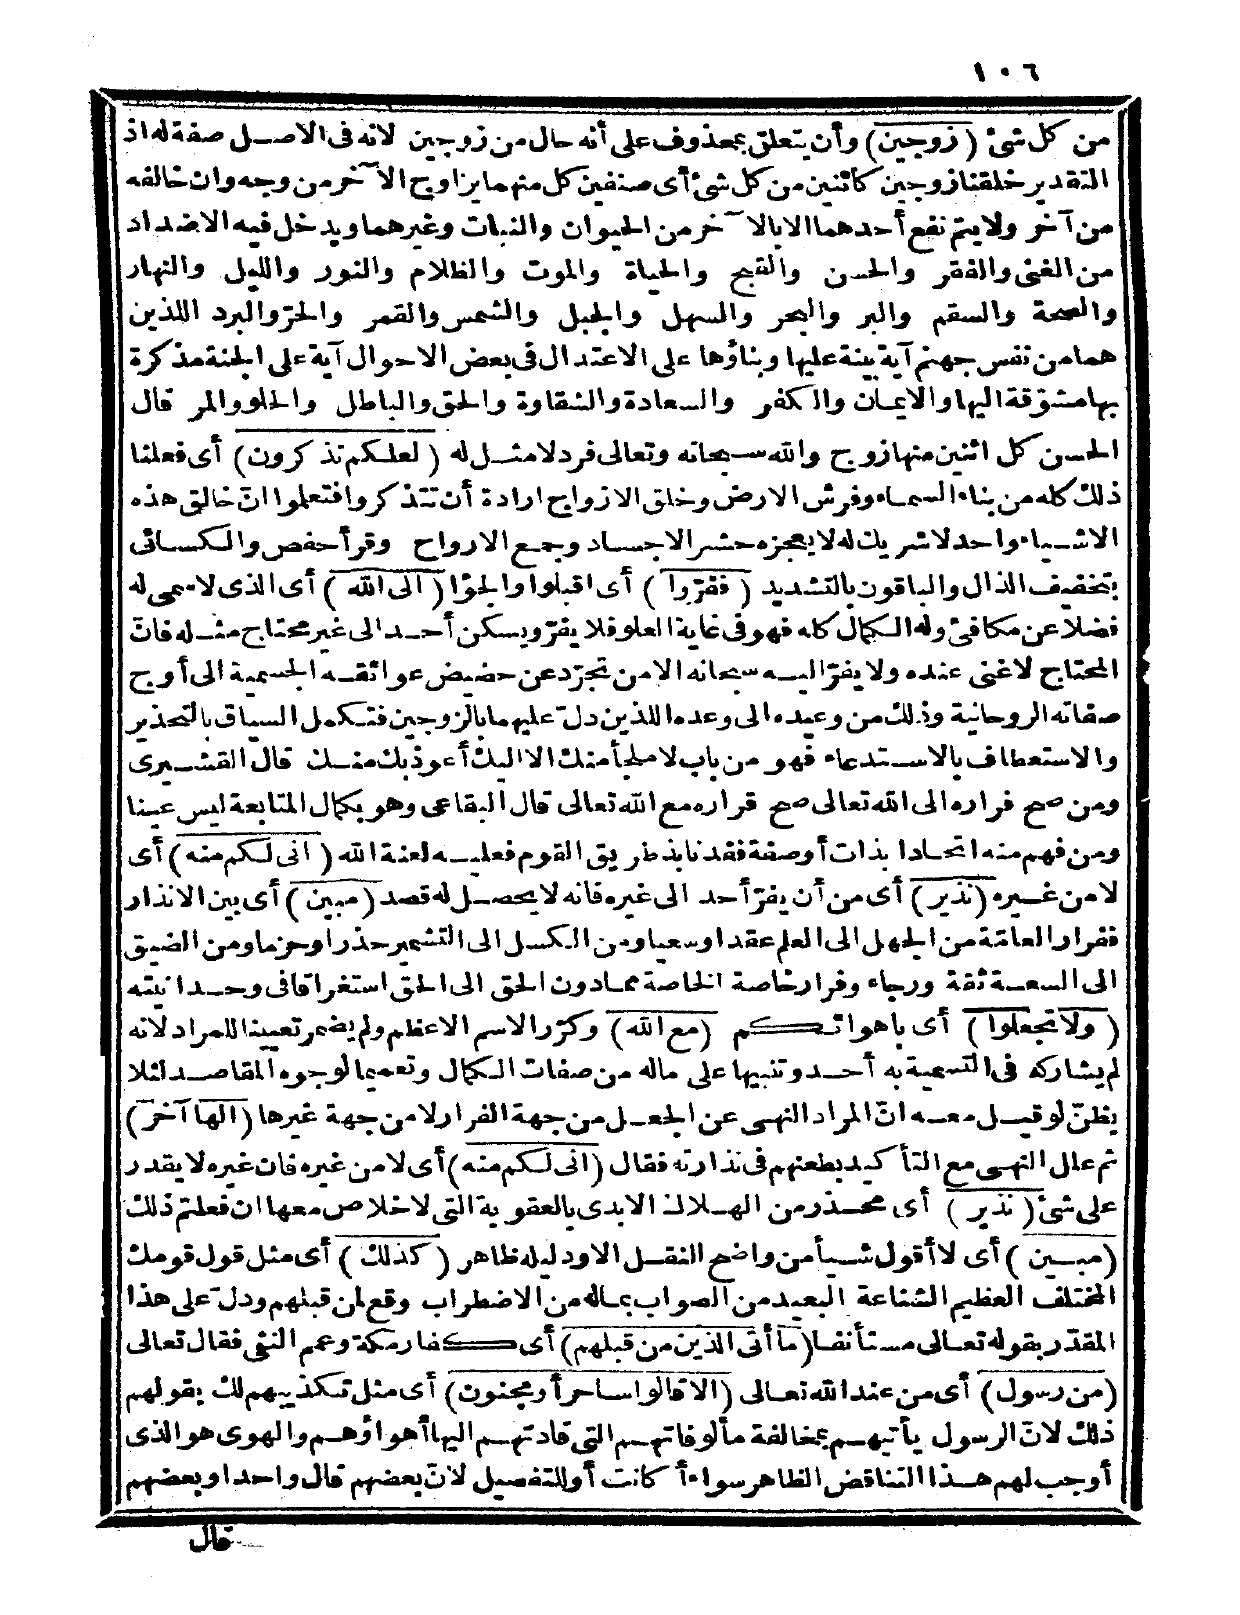 ١٠٦
من كل شئ (زوجين) وأن يتعلق بمحذوف على أنه حال من زوجين لانه فى الاصل صفة له اذ
التقدير خلقنا زوجين كائنين من كل شئ أى صنفين كل منهما يزاوج الآخر من وجه وان خالفه
من آخر ولا يتم نفع أحدهما الا بالآخر من الحيوان والنبات وغيرهما ويدخل فيه الاضداد
من الغنى والفقر والحسن والقبح والحياة والموت والظلام والنور والليل والنهار
والصحة والسقم والبر والبحر والسهل والجبل والشمس والقمر والحرّ والبرد اللذين
هما من نفس جهنم آية بينة عليها وبناؤها على الاعتدال فى بعض الاحوال آية على الجنة مذكرة
بها مشوّقة اليها والايمان والكفر والسعادة والشقاوة والحق والباطل والحلو والمر قال
الحسن كل اثنين منها زوج والله سبحانه وتعالى فرد لا مثل له (لعلكم تذكرون) أى فعلنا
ذلك كله من بناء السماء وفرش الارض وخلق الازواج ارادة أن تتذكروا فتعلموا انّ خالق هذه
الاشياء واحد لا شريك له لا يعجزه حشر الاجساد وجمع الارواح وقرأ حفص والكسائى
بتخفيف الذال والباقون بالتشديد (ففرّوا) أى اقبلوا والجؤا (الى الله) أى الذى لا سمى له
فضلا عن مكافئ وله الكمال كله فهو فى غاية العلو فلا يفرّ ويسكن أحد الى غير محتاج مثله فانّ
المحتاج لا غنى عنده ولا يفرّ اليه سبحانه الا من تجرّد عن حضيض عوائقه الجسمية الى أوج
صفاته الروحانية وذلك من وعيده الى وعده اللذين دلّ عليهما بالزوجين فتكمل السياق بالتحذير
والاستعطاف بالاستدعاء فهو من باب لا ملجأ منك الا اليك أعوذ بك منك قال القشيرى
ومن صح فراره الى الله تعالى صح قراره مع الله تعالى قال البقاعى وهو بكمال المتابعة ليس عينا
ومن فهم منه اتحادا بذات أو صفة فقد نابذ طريق القوم فعليه لعنة الله (انى لكم منه) أى
لا من غيره (نذير) أى من أن يفرّ أحد الى غيره فانه لا يحصل له قصد (مبين) أى بين الانذار
ففرار العامّة من الجهل الى العلم عقدا وسعيا ومن الكسل الى التشمير حذرا وحزما ومن الضيق
الى السعة ثقة ورجاء وفرار خاصة الخاصة مما دون الحق الى الحق استغراقا فى وحدانيته
(ولا تجعلوا) أى بأهوائكم (مع الله) وكرّر الاسم الاعظم ولم يضمر تعيينا للمراد لانه
لم يشاركه فى التسمية به أحد وتنبيها على ماله من صفات الكمال وتعميما لوجوه المقاصد لئلا
يظنّ لو قيل معه انّ المراد النهى عن الجعل من جهة الفرار لا من جهة غيرها (الها آخر)
ثم علل النهى مع التأكيد بطعنهم فى نذارته فقال (انى لكم منه) أى لا من غيره فان غيره لا يقدر
على شئ (نذير) أى محذر من الهلاك الابدى بالعقوبة التى لا خلاص معها ان فعلتم ذلك
(مبين) أى لا أقول شيأ من واضح النقل الا ودليله ظاهر (كذلك) أى مثل قول قومك
المختلف العظيم الشناعة البعيد من الصواب بماله من الاضطراب وقع لمن قبلهم ودلّ على هذا
المقدّر بقوله تعالى مستأنفا (ما أتى الذين من قبلهم) أى كفار مكة وعمم النفى فقال تعالى
(من رسول) أى من عند الله تعالى (الا قالوا ساحر أو مجنون) أى مثل تكذيبهم لك بقولهم
ذلك لانّ الرسول يأتيهم بمخالفة مألوفاتهم التى قادتهم اليها أهواؤهم والهوى هو الذى
أوجب لهم هذا التناقض الظاهر سواء أكانت أو للتفصيل لانّ بعضهم قال واحدا وبعضهم
قال